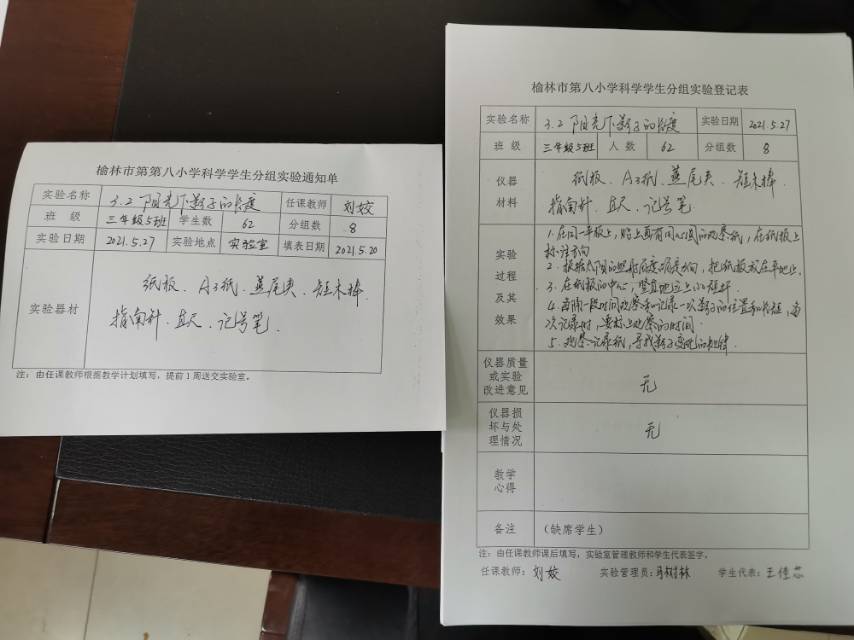 榆林市第第八小学科学学生分组实验通知单
实验名称 3.2 阳光下影子的长度 任课教师 刘姣
班 级 三年级5班 学生数 62 分组数 8
实验日期 2021.5.27 实验地点 实验室 填表日期 2021.5.20
实验器材
纸板、A3纸、燕尾夹、短木棒、
指南针、直尺、记号笔.
注：由任课教师根据教学计划填写，提前1周送交实验室。
榆林市第八小学科学学生分组实验登记表
实验名称 3.2 阳光下影子的长度 实验日期 2021.5.27
班 级 三年级5班 人 数 62 分组数 8
仪器
材料
纸板、A3纸、燕尾夹、短木棒、
指南针、直尺、记号笔
实验
过程
及其
效果
1. 在同一平板上，贴上画有同心圆的观察纸，在纸板上
标注方向
2. 根据太阳的照射确定方向，把纸板放在平地上.
3. 在纸板的中心，竖直地
4. 每隔一段时间观察和记录一次影子的位置和长短，每
次记录时，要标上观察的时间.
5. 观察记录纸，寻找影子变化的规律
仪器质量
或实验
改进意见
无
仪器损
坏与处
理情况
无
教学
心得
备注 （缺席学生）
注：由任课教师课后填写，实验室管理教师和学生代表签字。
任课教师：刘姣 实验管理员： 学生代表：王佳芯